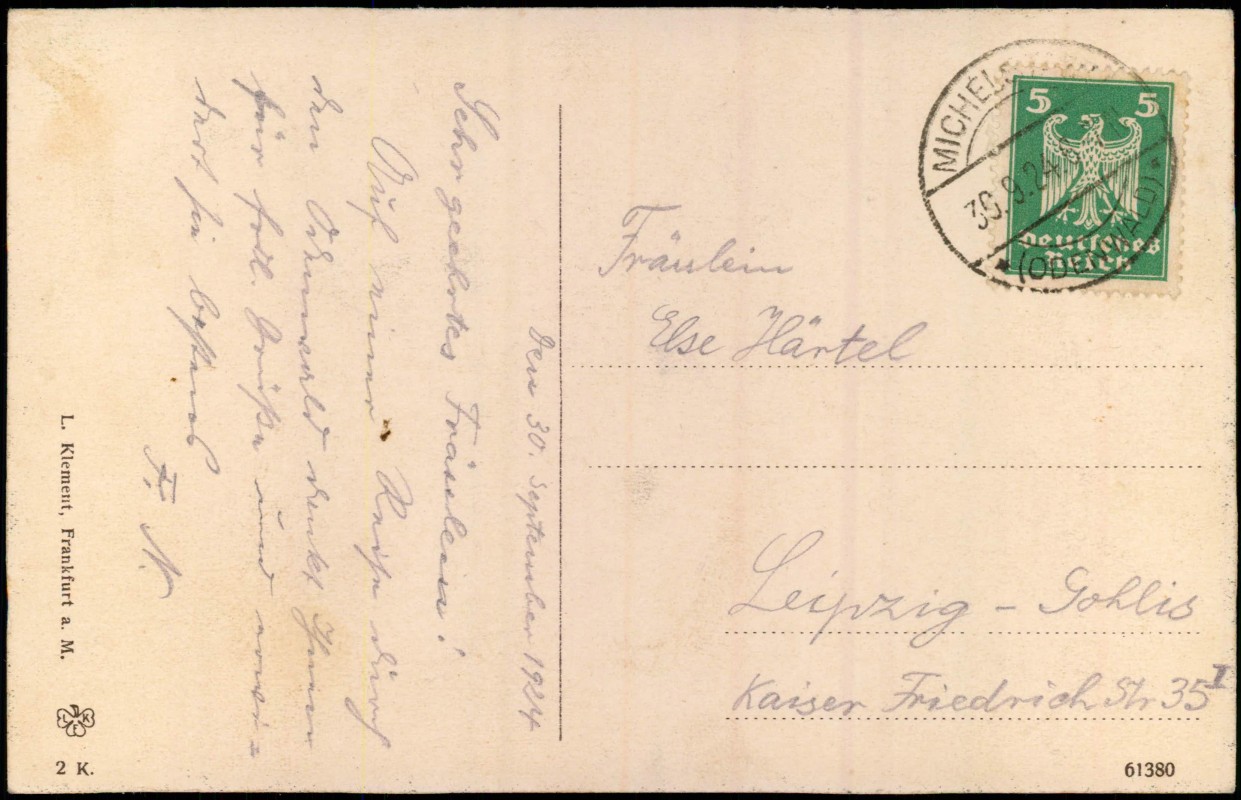 Den 30. September 1924
Sehr geehrtes Fräulein!
Auf einer Reise durch
den Odenwald denkt Ihrer
für frdl. Grüße und erwi-
dert sie bestens
F. N.
L. Klement, Frankfurt a. M.
2 K.
MICHELS
30.9.24
(ODENWALD)
5 5
Deutsches
Reich
Fräulein
Else Härtel
Leipzig - Gohlis
Kaiser Friedrich Str 35 I
61380